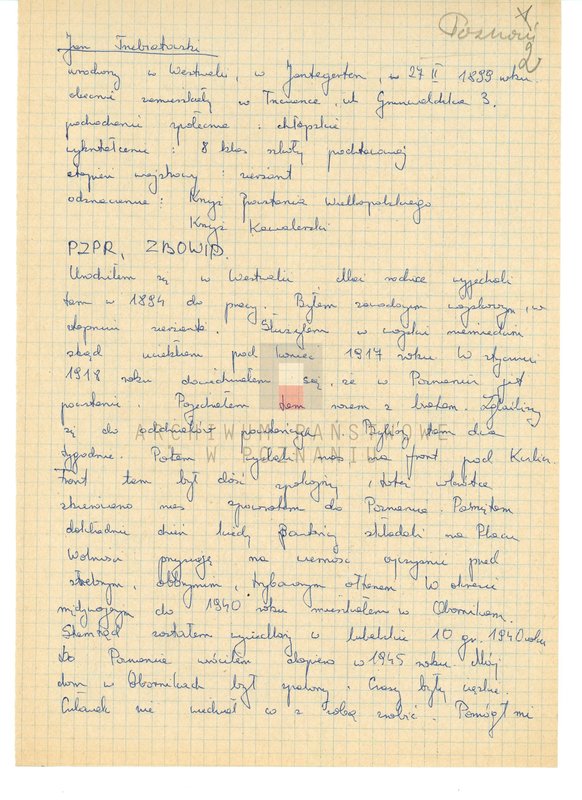 Poznań X
2
Jan Trebiatowski
urodzony w Westwalii, w , w 27 II 1899 roku
obecnie zamieszkały w Trzciance, ul. Grunwaldzka 3.
pochodzenie społeczne : chłopskie
wykształcenie : 8 klas szkoły podstawowej
stopień wojskowy : sierżant
odznaczenie : Krzyż Powstania Wielkopolskiego
Krzyż Kawalerski
PZPR, ZBOWID.
Urodziłem się w Westwalii. Moi rodzice wyjechali
tam w 1894 do pracy. Byłem zawodowym wojskowym, w
stopniu sierżanta. Służyłem w wojsku niemieckim
skąd uciekłem pod koniec 1917 roku. W styczniu
1918 roku dowiedziałem się, że w Poznaniu jest
powstanie. Pojechałem tam wraz z bratem. Zgłosiliśmy
się do oddziałów powstańczych. Byliśmy tam dwa
tygodnie. Potem wysłali nas na front pod
Front tam był dość spokojny, toteż właśnie
skierowano nas spowrotem do Poznania. Pamiętam
dokładnie dzień kiedy składali na Placu
Wolności przysięgę na wierność ojczyźnie przed
srebrnym, olbrzymim, ołtarzem. W okresie
międzywojennym do 1940 roku mieszkałem w Obornikach.
Stamtąd zostałem wysiedlony w lubelskie 10 gr. 1940 roku
Do Poznania wróciłem dopiero w 1945 roku. Mój
dom w Obornikach był spalony. Czasy były ciężkie.
Człowiek nie wiedział co z sobą zrobić. Pomógł mi
ARCHIWUM PAŃSTWOWE
W POZNANIU